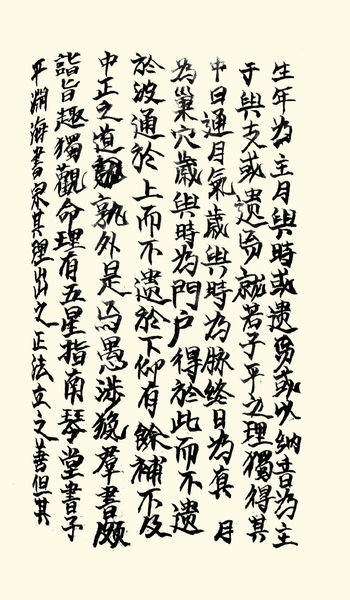 生年為主月與時或遺焉或以納音為主
于與支或遺焉就若子平之理獨得其
中日通月氣歲與時為脉絡日為真月
為巢穴歲與時為門户得於此而不遺
於波通於上而不遺於下仰有餘補不及
中正之道孰外是焉愚涉獵羣書頗
詣旨趣獨觀命理有五星指南琴堂書子
平淵海書泉其理出之正法立之善但其